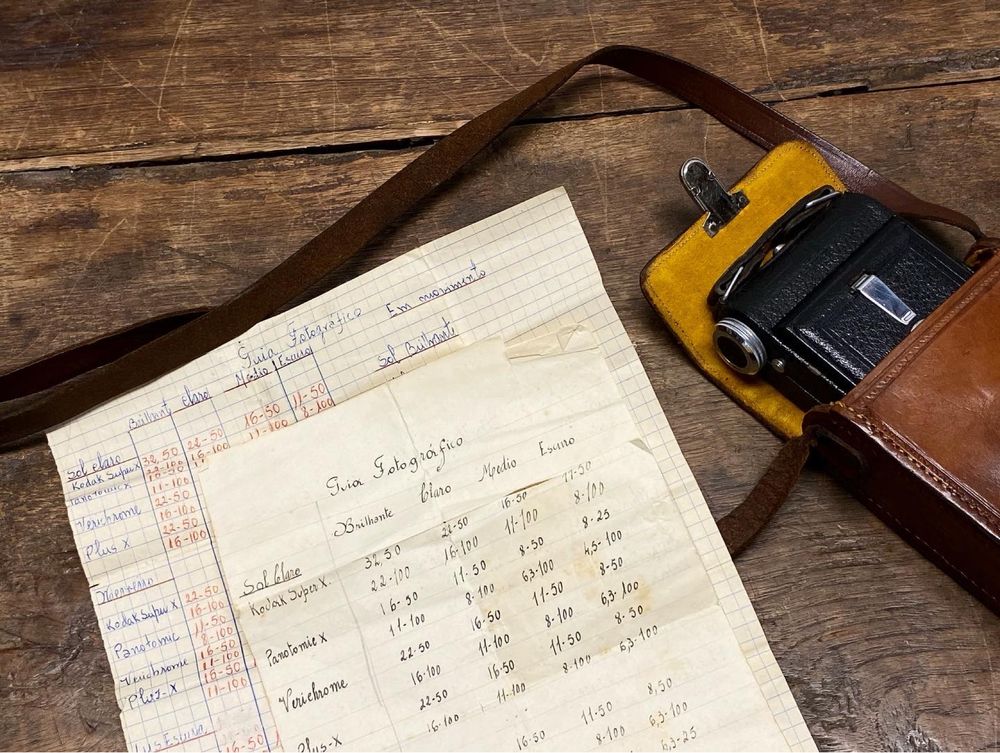 Guia Fotográfico Em movimento
Brilhant Claro Médio Escuro Sol Brilhant
Sol claro 32,50 22-50 16-50 11-50
Kodak Super X 22-100 16-100 11-100 8-100
Panotomic x 16-50
11-100
Verichrome 22-50
16-100
Plus X 22-50
16-100
Kodak Super X 22-50
16-100
Panatomic 11-50
8-100
Verichrome 16-50
11-100
Plus-X 16-50
11-100
16-50
Guia Fotográfico
Brilhante Claro Médio Escuro
Sol Claro
Kodak Super X. 32,50 22-50 16-50 11-50
22-100 16-100 11-100 8-100
Panotomic X 16-50 11-50 8-50 8-25
11-100 8-100 63-100 4,5-100
Verichrome 22-50 16-50 11-50 8-50
16-100 11-100 8-100 6,3-100
Plus-X 22-50 16-50 11-50 8-50
16-100 11-100 8-100 6,3-100
16-50 11-50 8,50
8-100 6,3-100
6,3-25